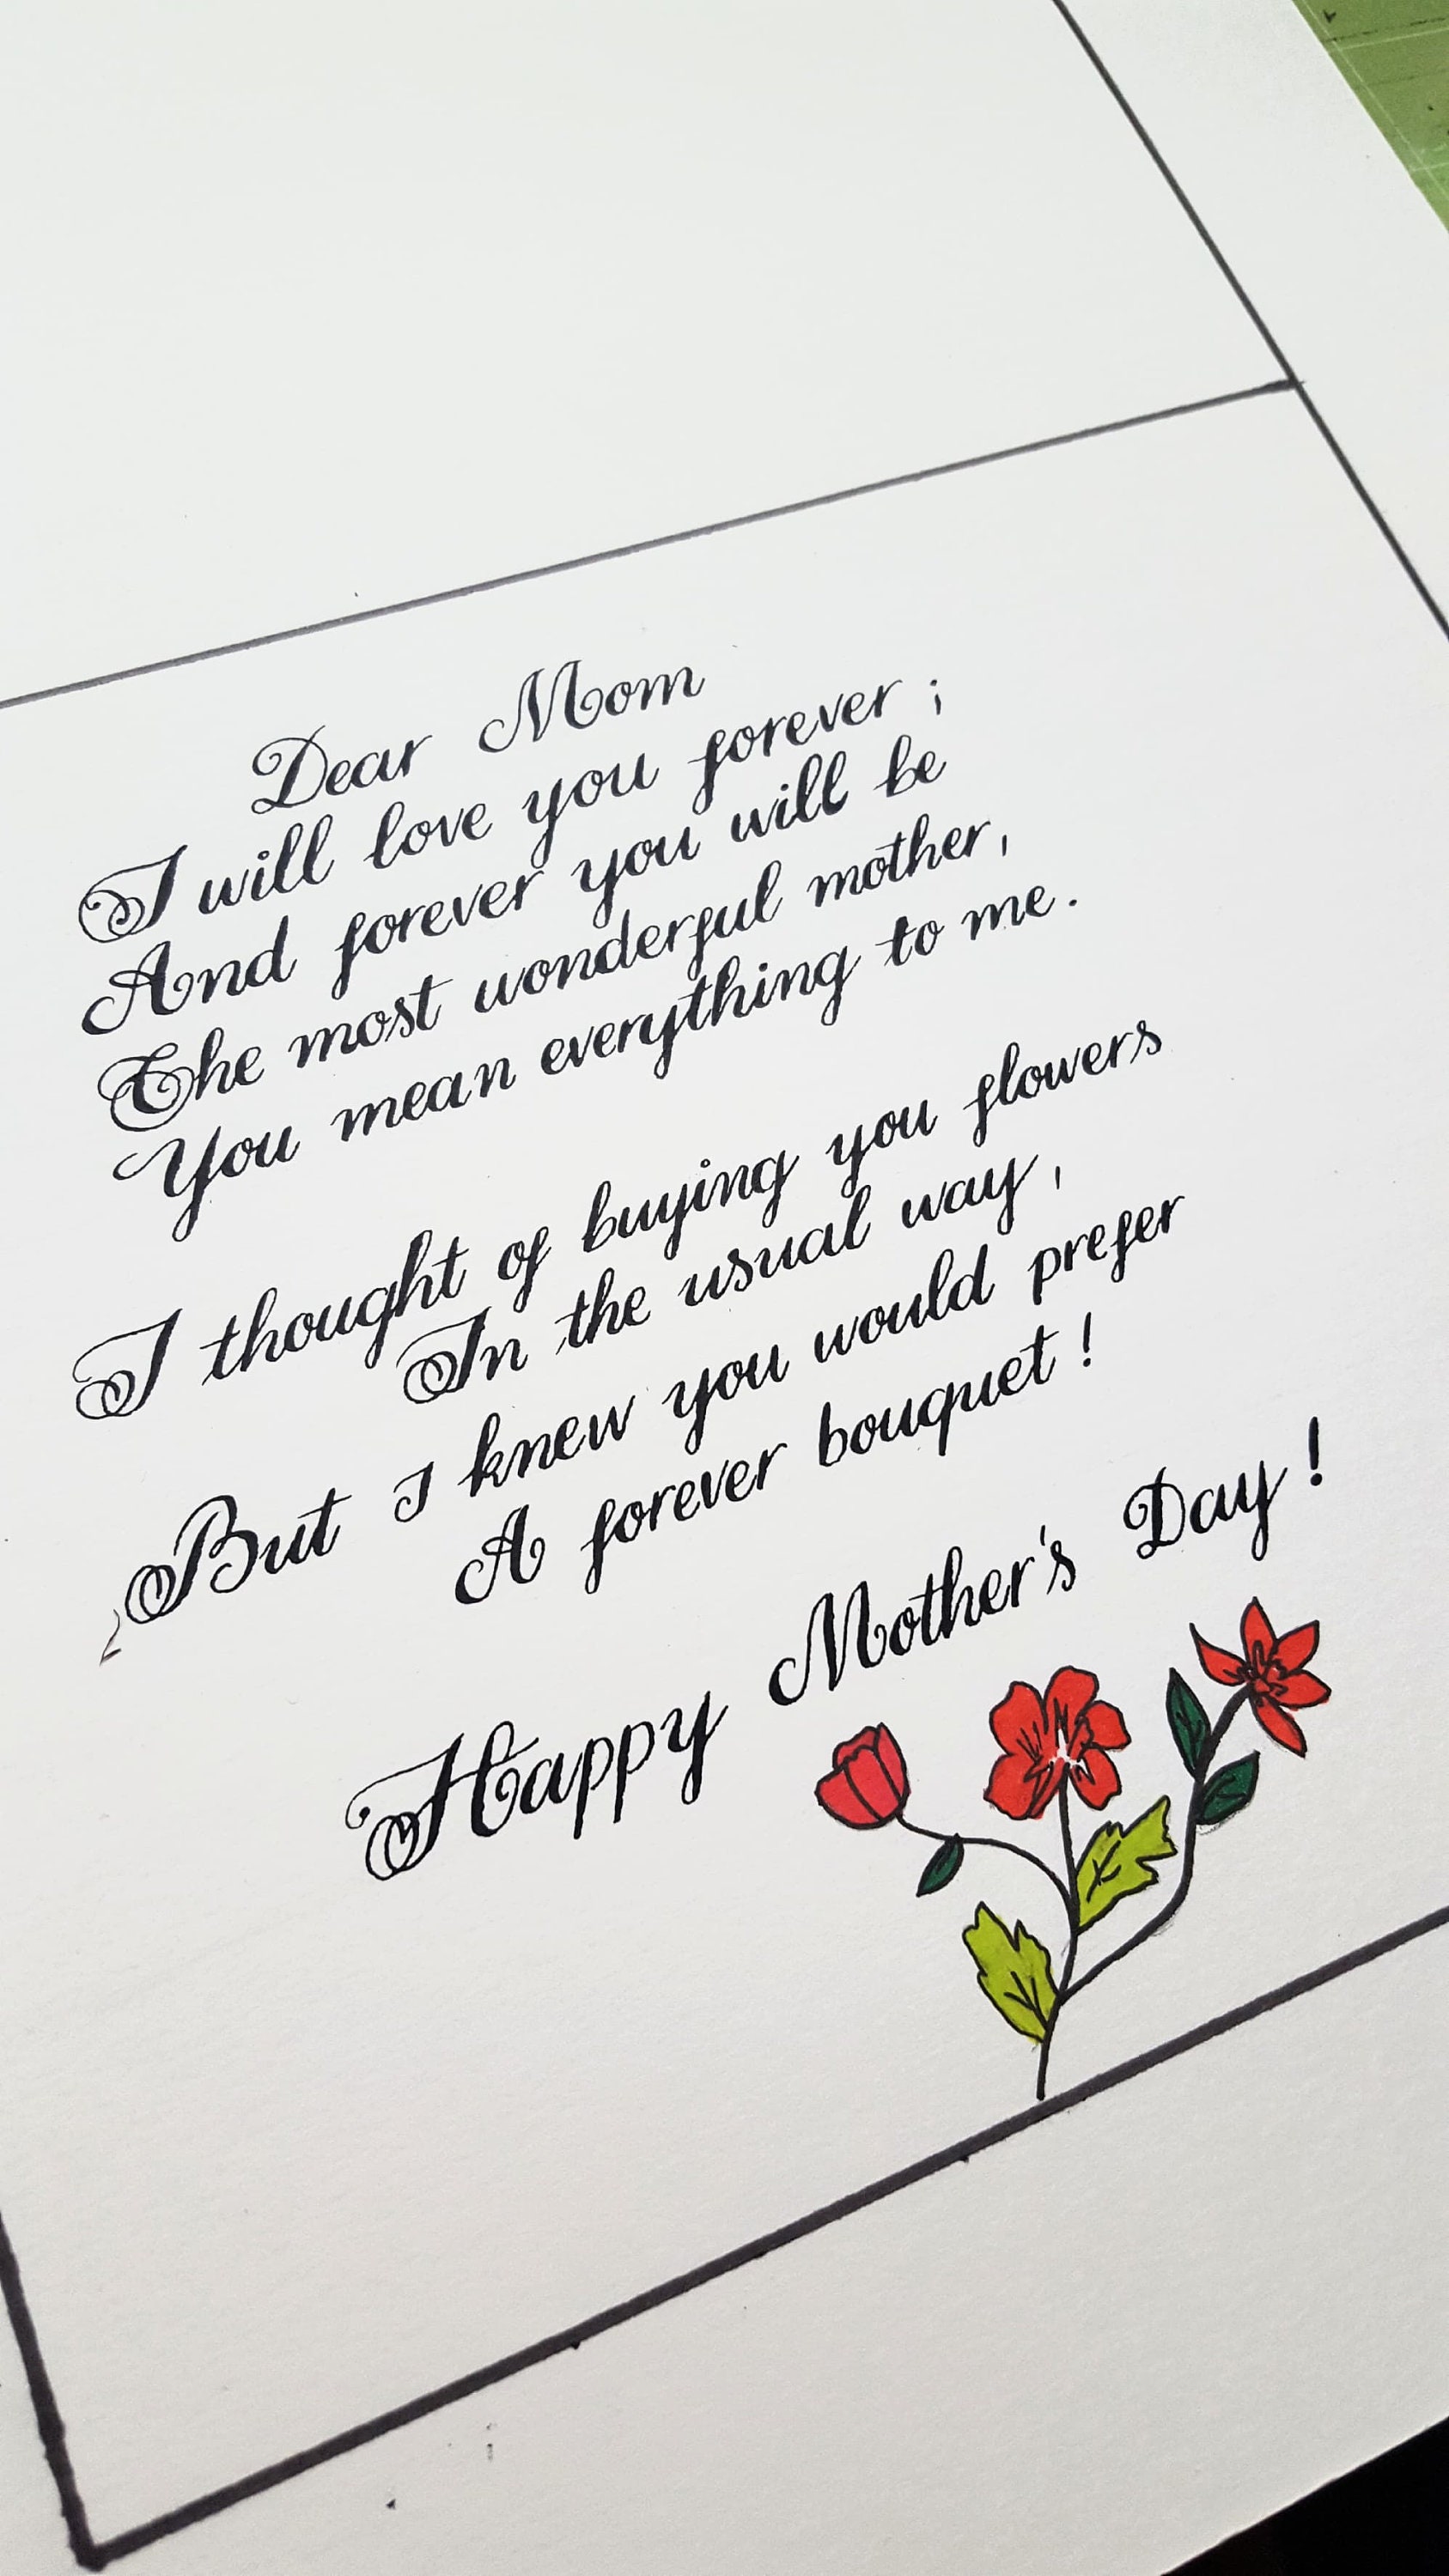 Dear Mom
I will love you forever;
And forever you will be
The most wonderful mother,
You mean everything to me.
I thought of buying you flowers
In the usual way,
But I knew you would prefer
A forever bouquet!
Happy Mother's Day!